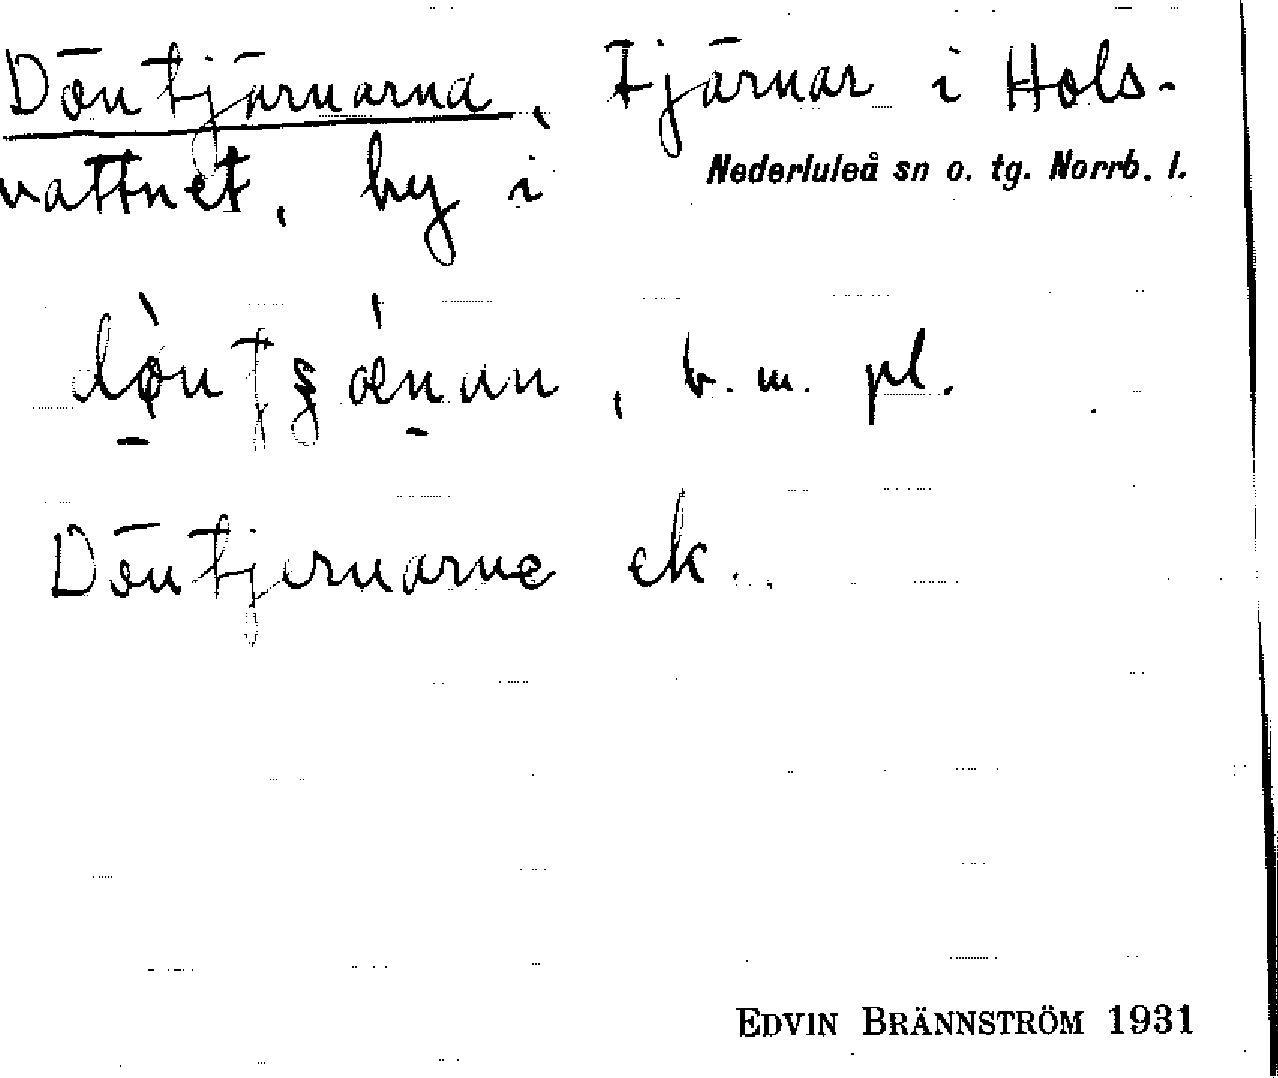 Döntjärnarna, tjärnar i Hols-
vattnet, by i Nederluleå sn o. tg. Norrb. l.
b. m. pl.
Döntjernarne ek.
EDVIN BRÄNNSTRÖM 1931